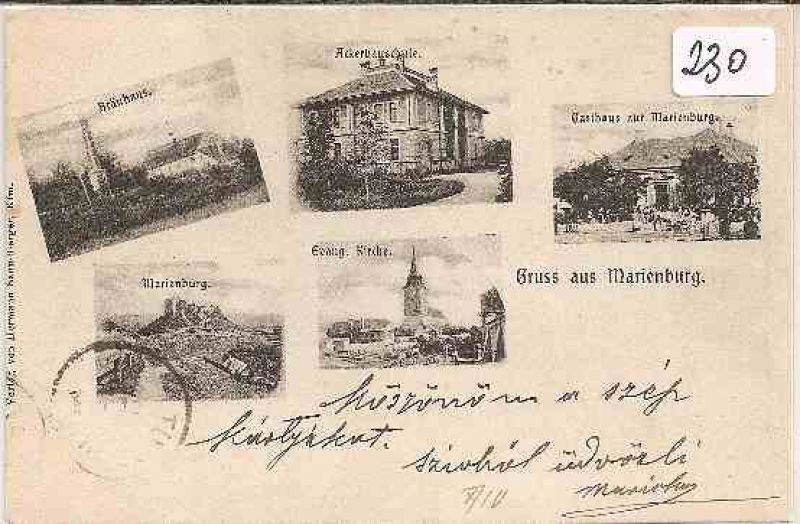 230
Ackerbauschule.
Bräuhaus.
Gasthaus zur Marienburg.
Evang. Kirche.
Marienburg.
Gruss aus Marienburg.
Verlag von Hermann
Köszönöm a szép
kártyákat.
szivből üdvözli
Mariska